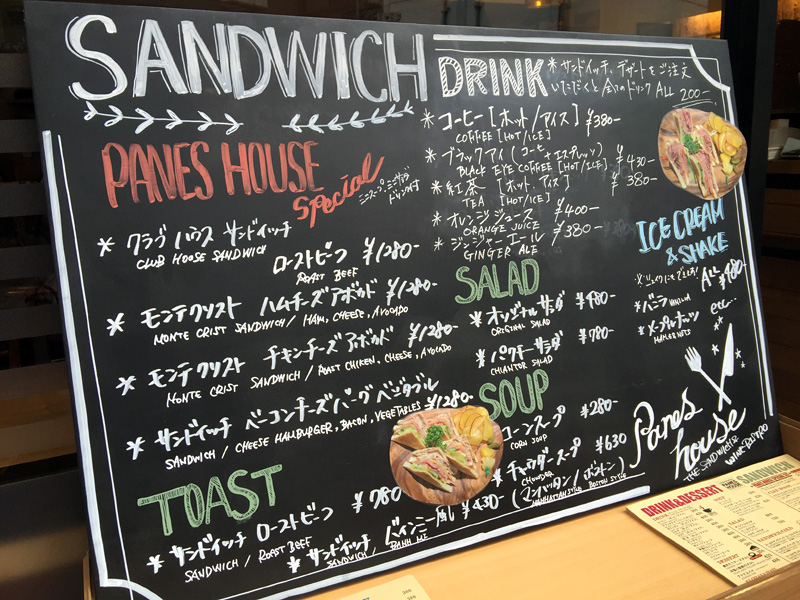 SANDWICH
PANES HOUSE
Special
ミニスープ、ミニサラダ
ドリンク付
* クラブ ハウス サンドイッチ
CLUB HOUSE SANDWICH
ローストビーフ ¥1280-
ROAST BEEF
* モンテクリスト ハムチーズアボカド ¥1280-
MONTE CRIST SANDWICH / HAM, CHEESE, AVOCADO
* モンテクリスト チキンチーズアボカド ¥1280-
MONTE CRIST SANDWICH / ROAST CHIKEN, CHEESE, AVOCADO
* サンドイッチ ベーコンチーズバーグベジタブル
SANDWICH / CHEESE HAMBURGER, BACON, VEGETABLES ¥1280-
TOAST
* サンドイッチ ローストビーフ ¥780
SANDWICH / ROAST BEEF
* サンドイッチ / バインミー風 ¥430-
SANDWICH / BANH MI
DRINK
*サンドイッチ、デザートをご注文
いただくと全てのドリンク ALL 200-
* コーヒー [ホット/アイス] ¥380-
COFFEE [HOT/ICE]
* ブラックアイ (コーヒー+エスプレッソ) ¥430-
BLACK EYE COFFEE [HOT/ICE]
* 紅茶 [ホット、アイス] ¥380-
TEA [HOT/ICE]
* オレンジジュース ¥400-
ORANGE JUICE
* ジンジャーエール ¥380-
GINGER ALE
SALAD
* オリジナルサラダ ¥480-
ORIGINAL SALAD
* パクチーサラダ ¥780-
CHIANTOR SALAD
SOUP
コーンスープ ¥280-
CORN SOUP
* チャウダースープ ¥630
CHOWDER
(マンハッタン/ボストン)
MANHATTAN STYLE BOSTON STYLE
ICE CREAM
& SHAKE
ALL ¥480-
* バニラ VANILLA
* メープルナッツ etc...
MAPLE NUTS
Panes
house
THE SANDWICH &
WINE BISTRO
DRINK&DESSERT
SANDWICH